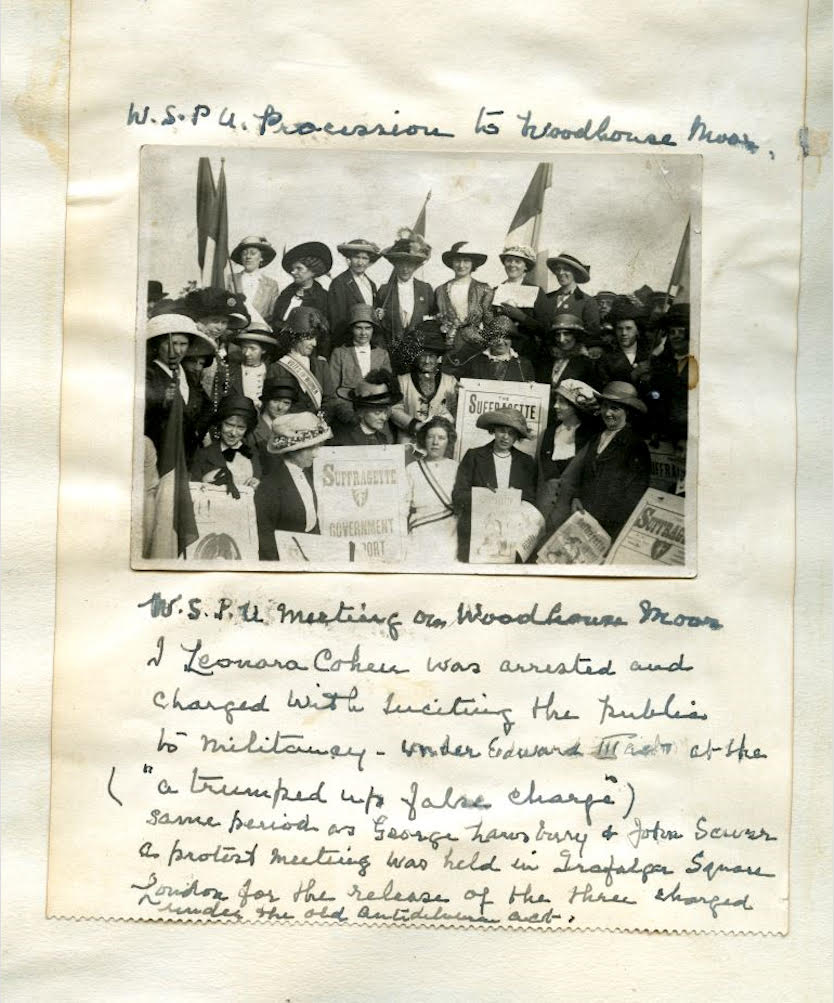 W.S.P.U. Procession to Woodhouse Moor.
THE
SUFFRAGETTE
SUFFRAGETTE
GOVERNMENT
SUFFRA
SUFFRAG
W.S.P.U Meeting on Woodhouse Moor
I Leonora Cohen was arrested and
charged with inciting the public
to militancy - under Edward III act at the
("a trumped up false charge")
same period as George Lansbury & John Scurr
a protest meeting was held in Trafalgar Square
London for the release of the three charged
under the old antideluvian act.